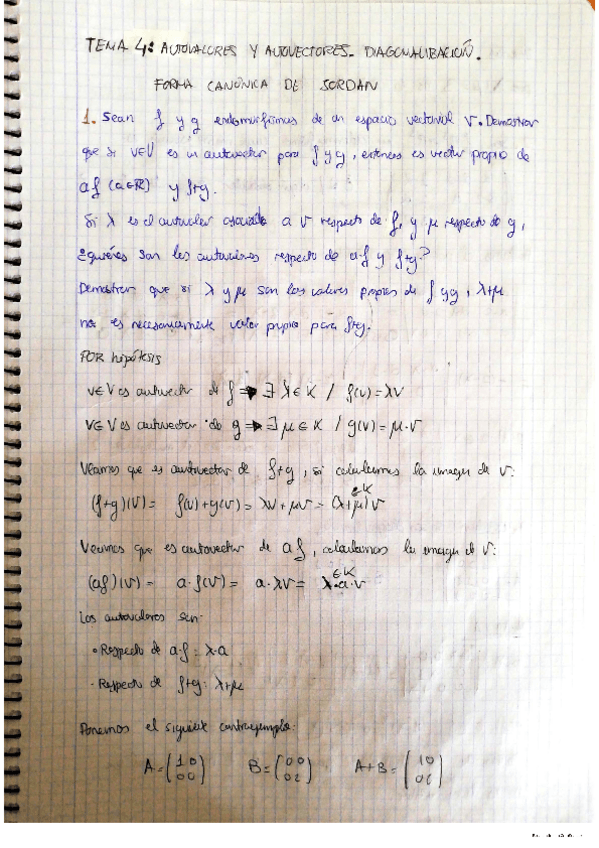 TEMA 4: AUTOVALORES Y AUTOVECTORES. DIAGONALIZACIÓN.
FORMA CANÓNICA DE JORDAN
1. Sean f y g endomorfismos de un espacio vectorial V. Demostrar
que si v∈V es un autovector para f y g, entonces es vector propio de
af (a∈R) y f+g.
Si λ es el autovalor asociado a v respecto de f, y μ respecto de g,
¿quiénes son los autovalores respecto de a·f y f+g?
Demostrar que si λ y μ son los valores propios de f y g, λ+μ
no es necesariamente valor propio para f+g.
POR hipótesis
v∈V es autovector de f ⇒ ∃ λ∈K / f(v)=λv
v∈V es autovector de g ⇒ ∃ μ∈K / g(v)=μ·v
Veamos que es autovector de f+g, si calculamos la imagen de v:
(f+g)(v)= f(v)+g(v)= λv+μv= (λ+μ)v ∈K
Veamos que es autovector de af, calculamos la imagen de v:
(af)(v)= a·f(v)= a·λv= λ·a·v ∈K
Los autovalores son:
• Respecto de a·f: λ·a
· Respecto de f+g: λ+μ
Ponemos el siguiente contraejemplo:
A=(1 0 B=(0 0 A+B=(1 0
0 0) 0 2) 0 2)